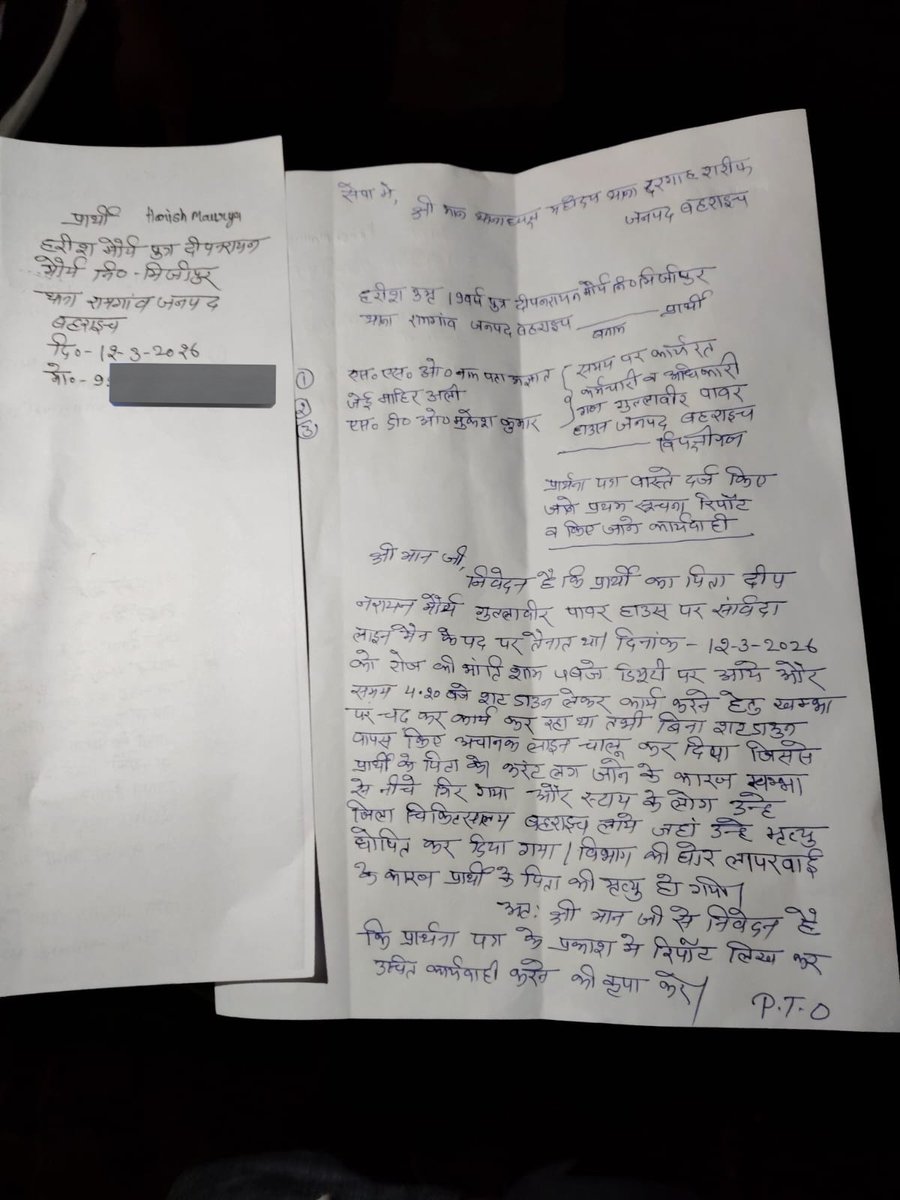 सेवा में,
श्री मान थानाध्यक्ष महोदय थाना दरगाह शरीफ
जनपद बहराइच
हरीश उम्र 19वर्ष पुत्र दीपनरायन मौर्य नि० मिर्जापुर
थाना रामगांव जनपद बहराइच ——— प्रार्थी
बनाम
① एस० एस० ओ० नाम पता अज्ञात
② जेई माहिर अली
③ एस० डी० ओ० मुकेश कुमार
समय पर कार्यरत
कर्मचारी व अधिकारी
गण गुल्लावीर पावर
हाउस जनपद बहराइच
——— विपक्षीगण
प्रार्थना पत्र वास्ते दर्ज किए
जाने प्रथम सूचना रिपोर्ट
व किए जाने कार्यवाही
श्री मान जी,
निवेदन है कि प्रार्थी का पिता दीप
नरायन मौर्य गुल्लावीर पावर हाउस पर संविदा
लाइन मैन के पद पर तैनात था। दिनांक - 12-3-2026
को रोज की भांति शाम बजे डियुटी पर आये और
समय 4.20 बजे शट डाउन लेकर कार्य करने हेतु खम्भा
पर चढ कर कार्य कर रहा था तभी बिना शटडाउन
वापस किए अचानक लाइन चालू कर दिया जिससे
प्रार्थी के पिता को करंट लग जाने के कारण खम्भा
से नीचे गिर गया और स्टाफ के लोग उन्हे
जिला चिकित्सालय बहराइच लाये जहां उन्हे मृत्यु
घोषित कर दिया गया। विभाग की घोर लापरवाई
के कारण प्रार्थी के पिता की मृत्यु हो गयी।
अतः श्री मान जी से निवेदन है
कि प्रार्थना पत्र के प्रकाश मे रिपोर्ट लिख कर
उचित कार्यवाही करने की कृपा करें।
P.T.O
प्रार्थी Harish Maurya
हरीश मौर्य पुत्र दीपनरायन
मौर्य नि० - मिर्जापुर
थाना रामगांव जनपद
बहराइच
दि० - 12-3-2026
मो० - 9